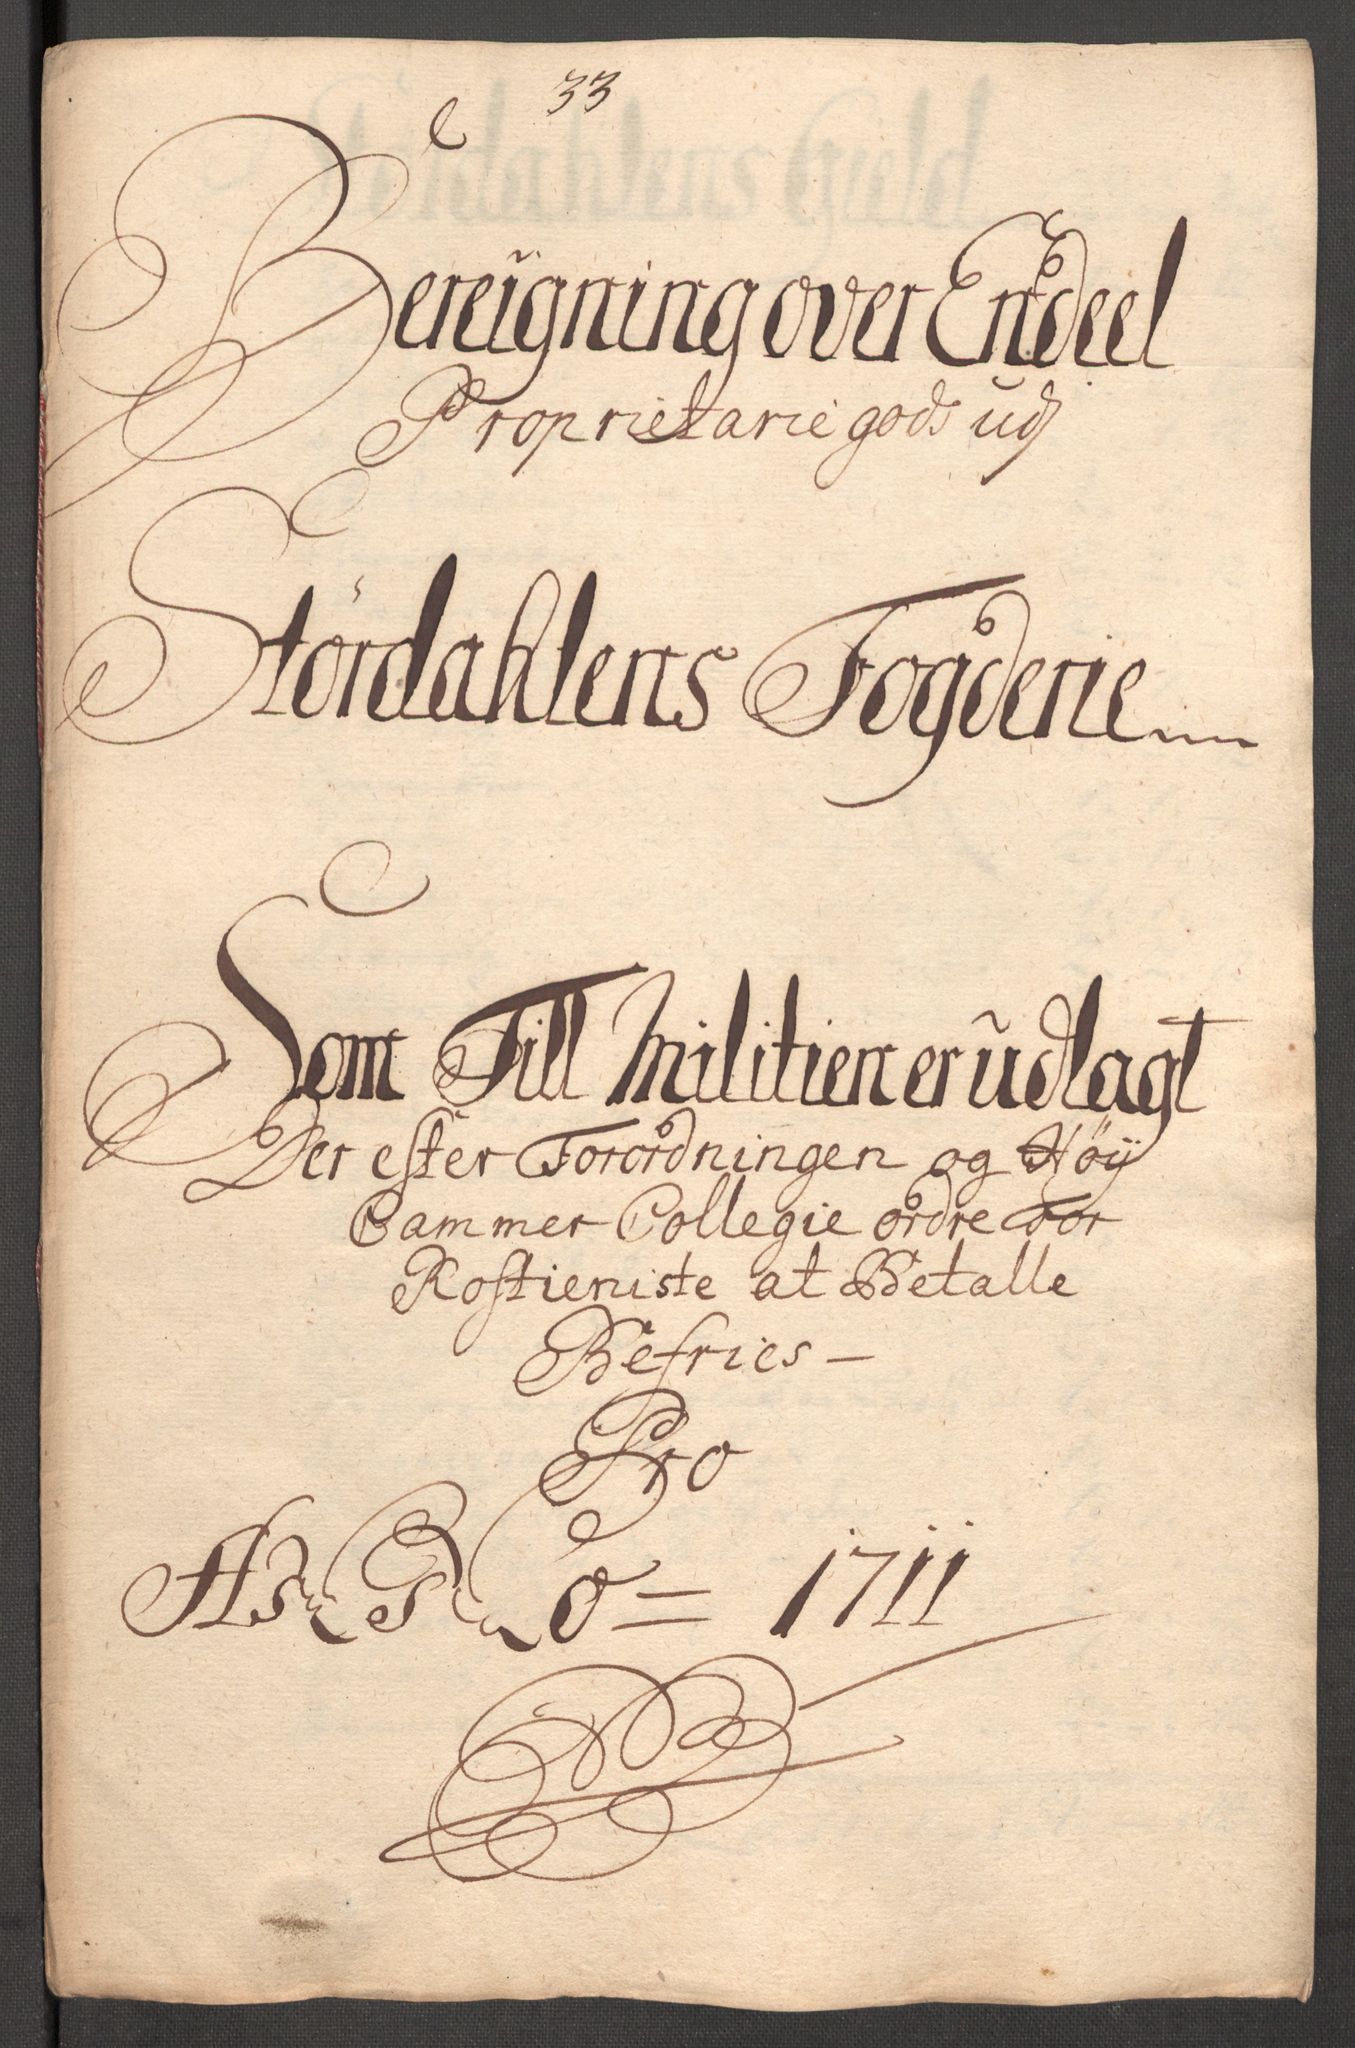 33
Bereigning over Endeel
Proprietarie gods udj
Størdahlens Fogderie
Som Till Militien er udlagt
Der efter Forordningen og Høÿ
Cammer Collegie ordre for
Rostieniste at Betalle
Befries —
Pro
1711